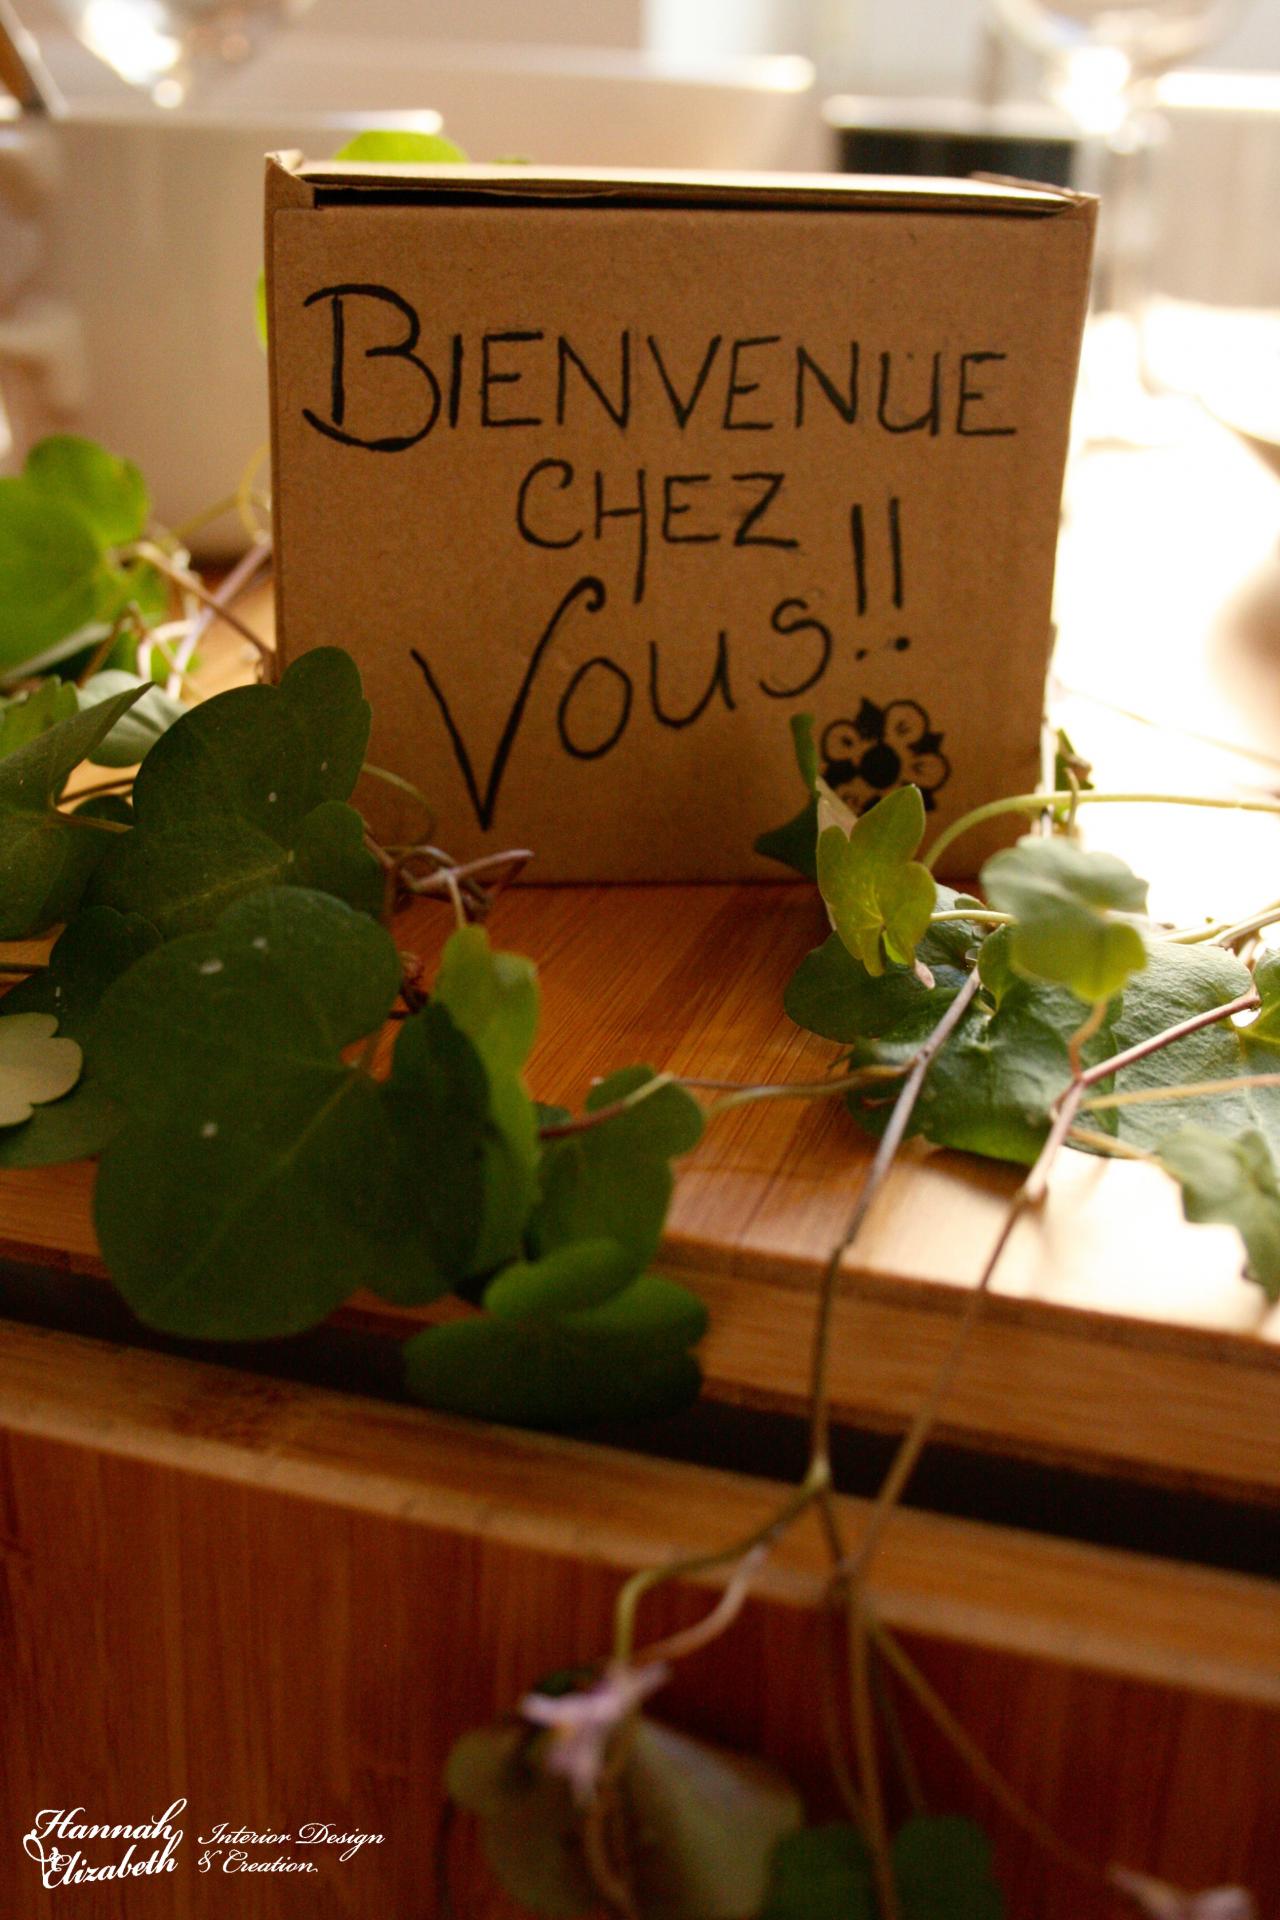 BIENVENUE
CHEZ
VOUS!!
Hannah Elizabeth
Interior Design
& Creation